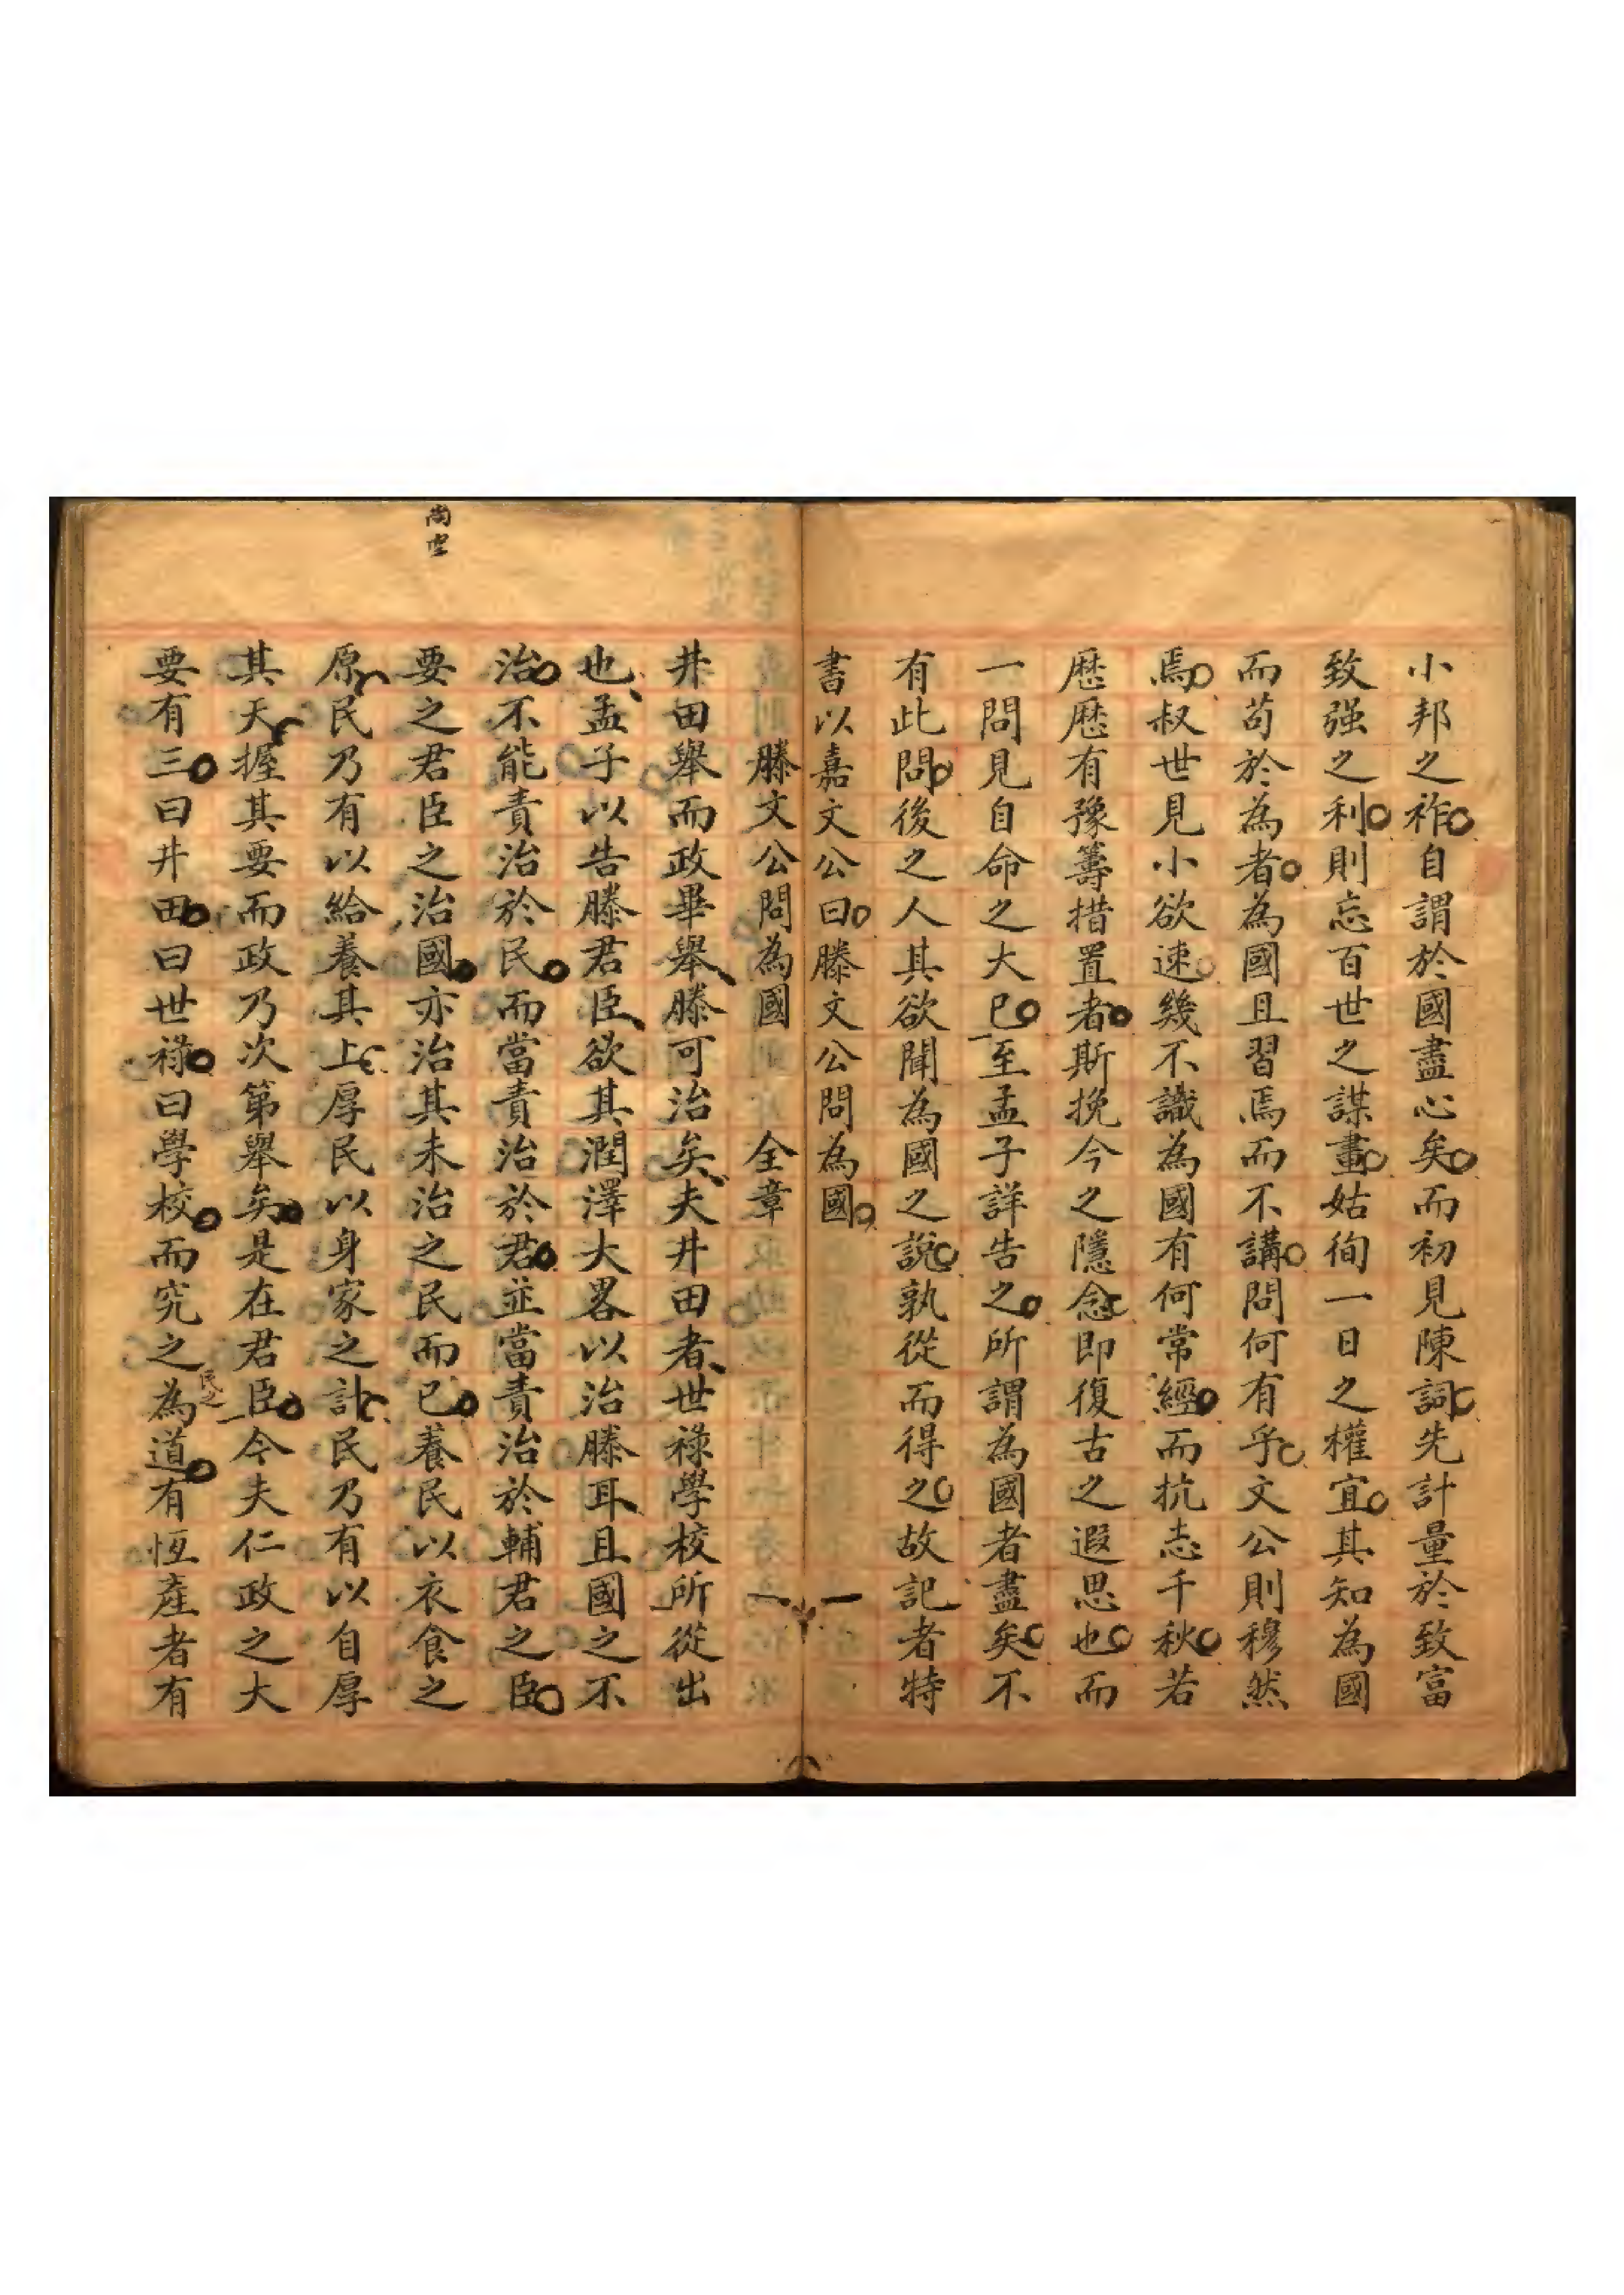 小邦之祚自謂於國盡心矣而初見陳詞先計量於致富
致强之利則忘百世之謀畫姑徇一日之權宜其知為國
而苟於為者為國且習焉而不講問何有乎文公則穆然
焉叔世見小欲速幾不識為國有何常經而抗志千秋若
歷歷有豫籌措置者斯挽今之隱念即復古之遐思也而
一問見自命之大已至孟子詳告之所謂為國者盡矣不
有此問後之人其欲聞為國之說孰從而得之故記者特
書以嘉文公曰滕文公問為國
滕文公問為國 全章
井田舉而政畢舉滕可治矣夫井田者世祿學校所從出
也孟子以告滕君臣欲其潤澤大畧以治滕耳且國之不
治不能責治於民而當責治於君並當責治於輔君之臣
尚空
要之君臣之治國亦治其未治之民而已養民以衣食之
原民乃有以給養其上厚民以身家之計民乃有以自厚
其天握其要而政乃次第舉矣是在君臣今夫仁政之大
要有三曰井田曰世祿曰學校而究之為道有恆產者有
民之